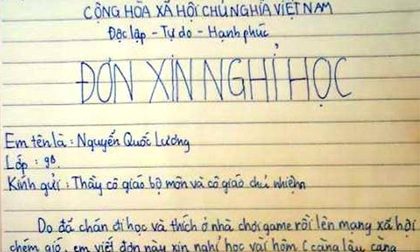 CỘNG HÒA XÃ HỘI CHỦ NGHĨA VIỆT NAM
Độc lập - Tự do - Hạnh phúc
ĐƠN XIN NGHỈ HỌC
Em tên là : Nguyễn Quốc Lương
Lớp : 9B.
Kính gửi : Thầy cô giáo bộ môn và cô giáo chủ nhiệm
Do đã chán đi học và thích ở nhà chơi game rồi lên mạng xã hội
chém gió, em viết đơn này xin nghỉ học vài hôm ( càng lâu càng